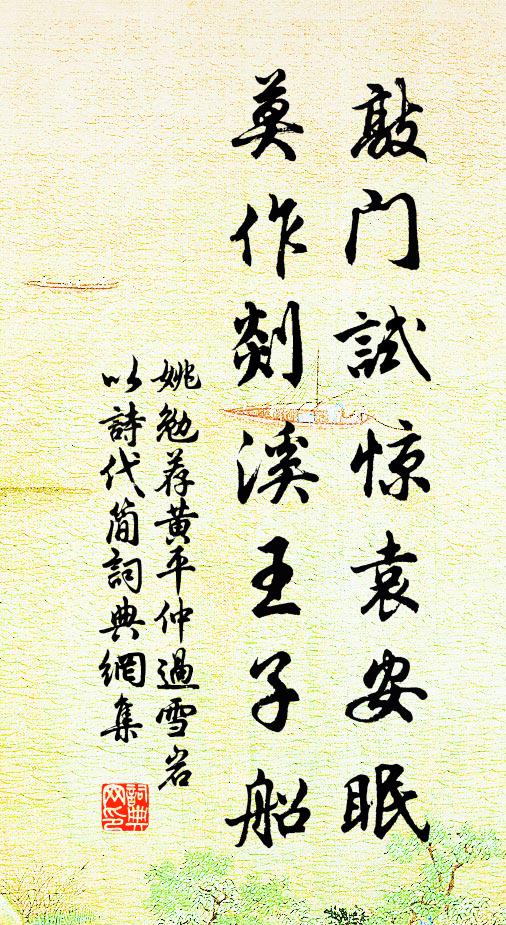 敲门試惊袁安眠
莫作剡溪王子船
姚勉荐黄平仲過雪岩
以詩代简詞典網集
詞典网印